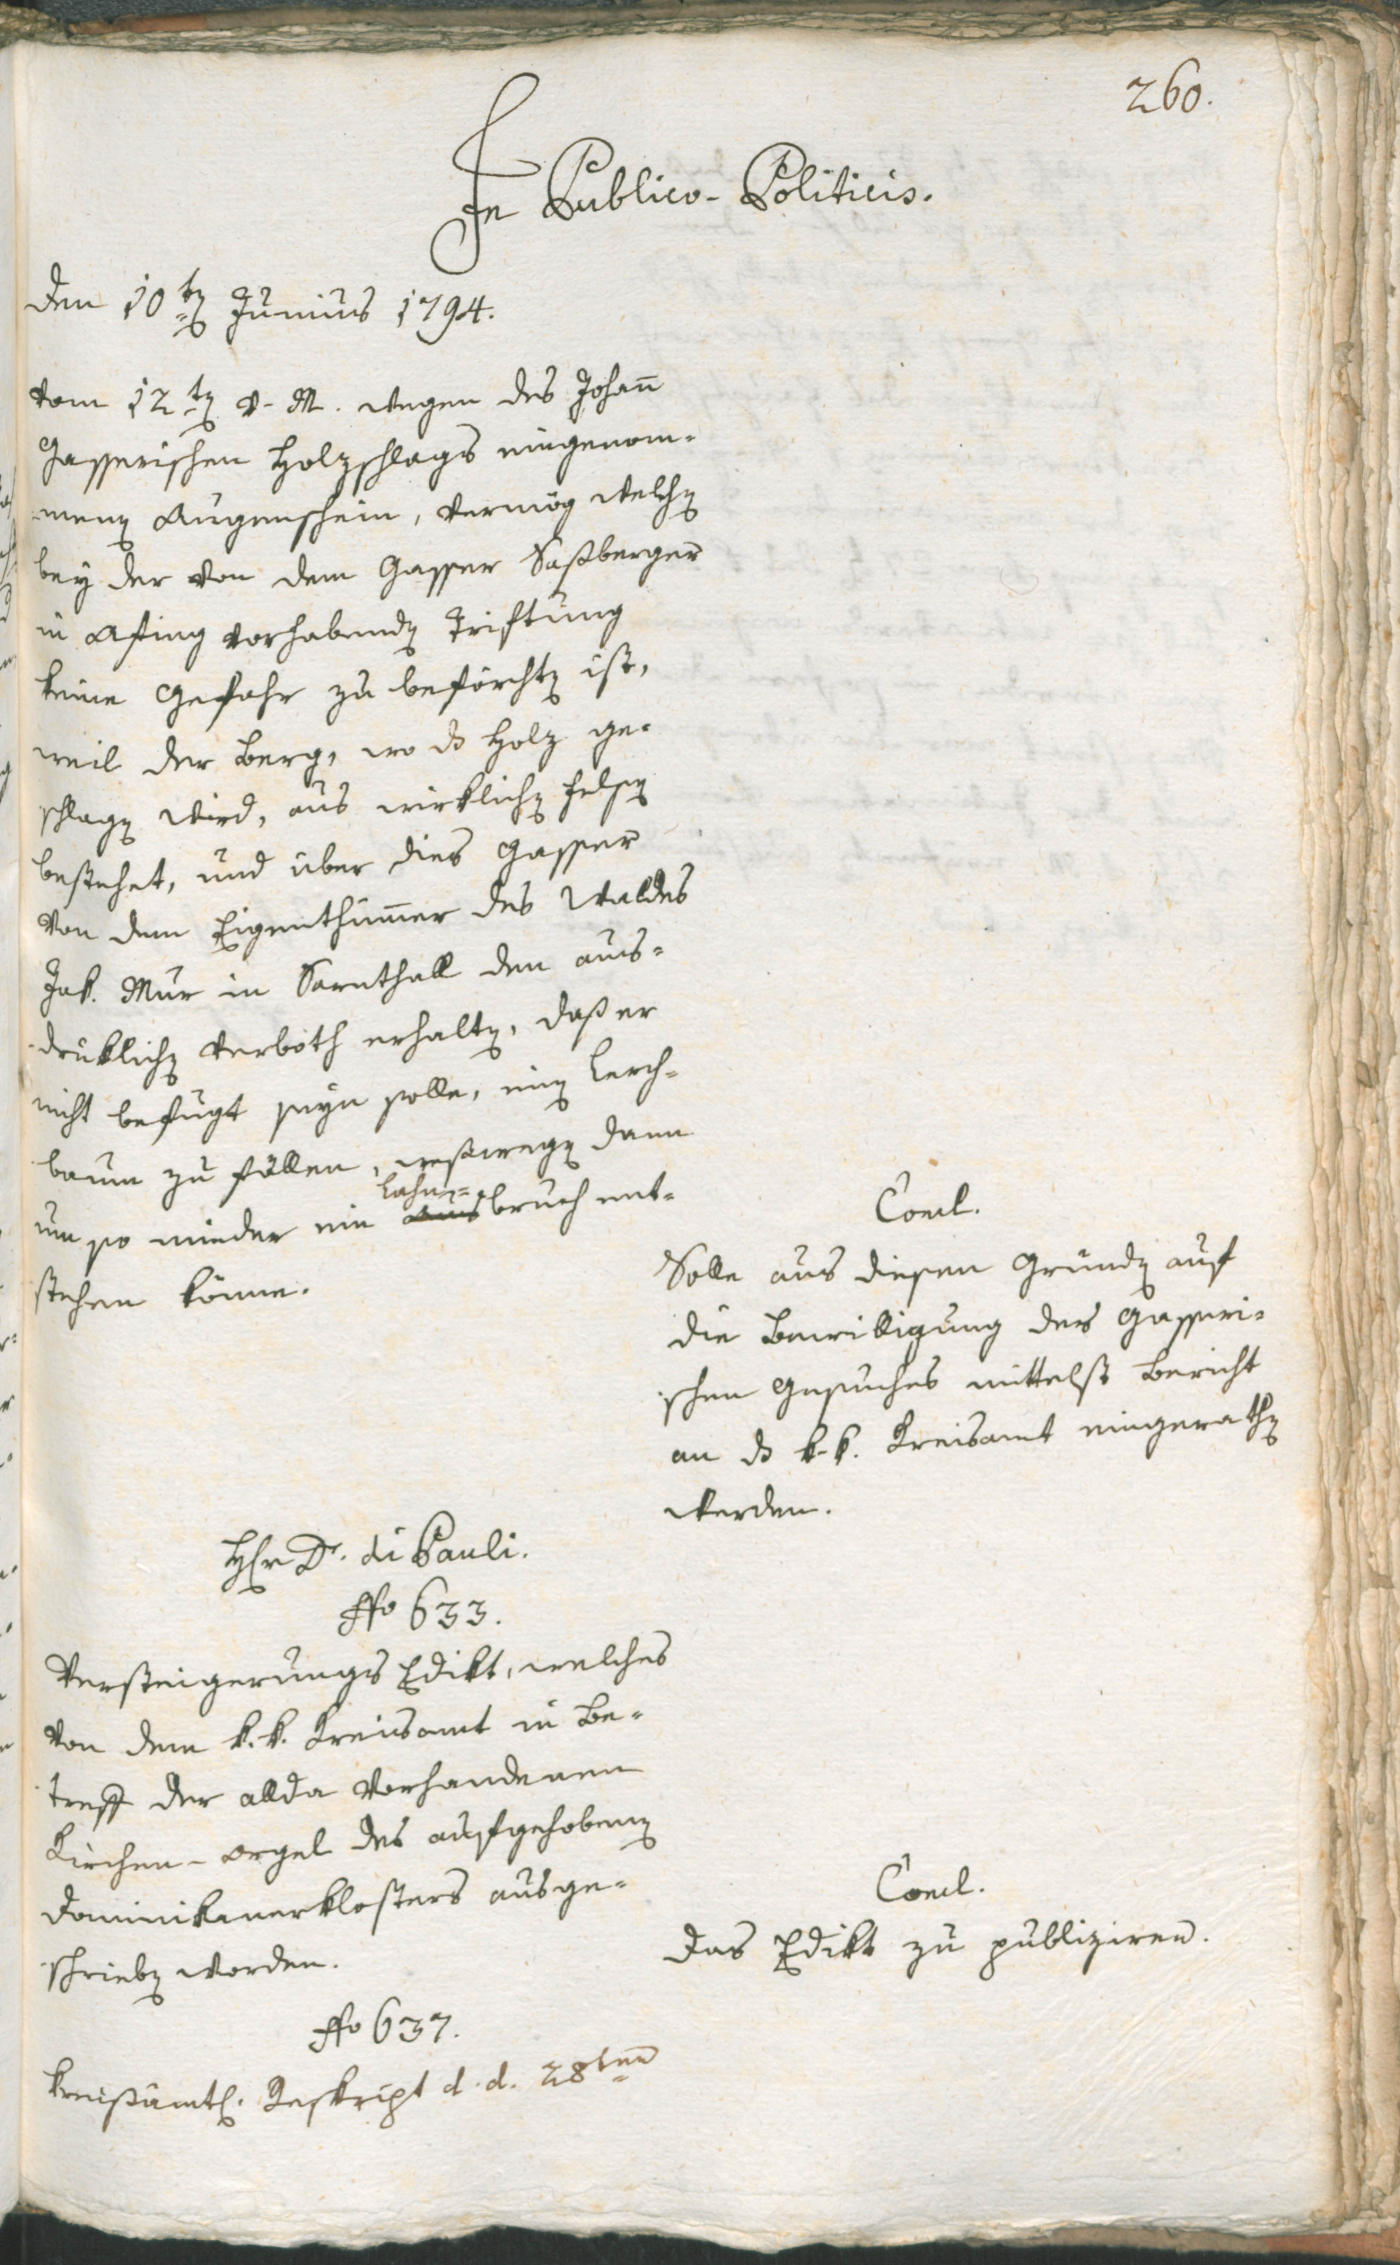 260.
In Publico-Politicis.
den 10ten Junius 1794.
vom 12ten v. M. wegen des Johann
Gasserischen Holzschlags eingenom-
menen Augenschein, vermög welchen
bey der von dem Gasser Saßberger
in Afing vorhabenden Triftung
keine Gefahr zu beförchten ist,
weil der Berg, wo das Holz ge-
schlagen wird, aus wirklichen Felsen
bestehet, und über dies Gasser
von dem Eigenthümmer des Waldes
Jak. Mur in Sarnthall den aus-
drüklichen Verboth erhalten, daß er
nicht befugt seyn solle, einen Lerch-
baum zu fällen, weßwegen dann
um so minder ein Lahn-
bruch ent-
stehen könne.
Concl.
Solle aus diesen Gründen auf
die Bewilligung des Gasseri-
schen Gesuches mittelst Bericht
an das k. k. Kreisamt eingerathen
werden.
Herr Dr. di Pauli.
No 633.
Versteigerungs Edikt, welches
von dem k. k. Kreisamt in Be-
treff der allda vorhandenen
Kirchen-orgel des aufgehobenen
Dominikanerklosters ausge-
schrieben worden.
Concl.
Das Edikt zu publiziren.
No 637.
Kreißämtl. Reskript d. d. 28ten